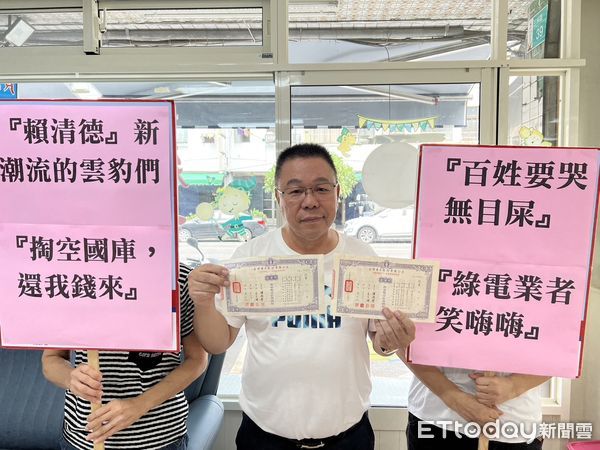 『賴清德』新
潮流的雲豹們
『掏空國庫，
還我錢來』
『百姓要哭
無目屎』
『綠電業者
笑嗨嗨』
PUMA
39
ETtoday新聞雲